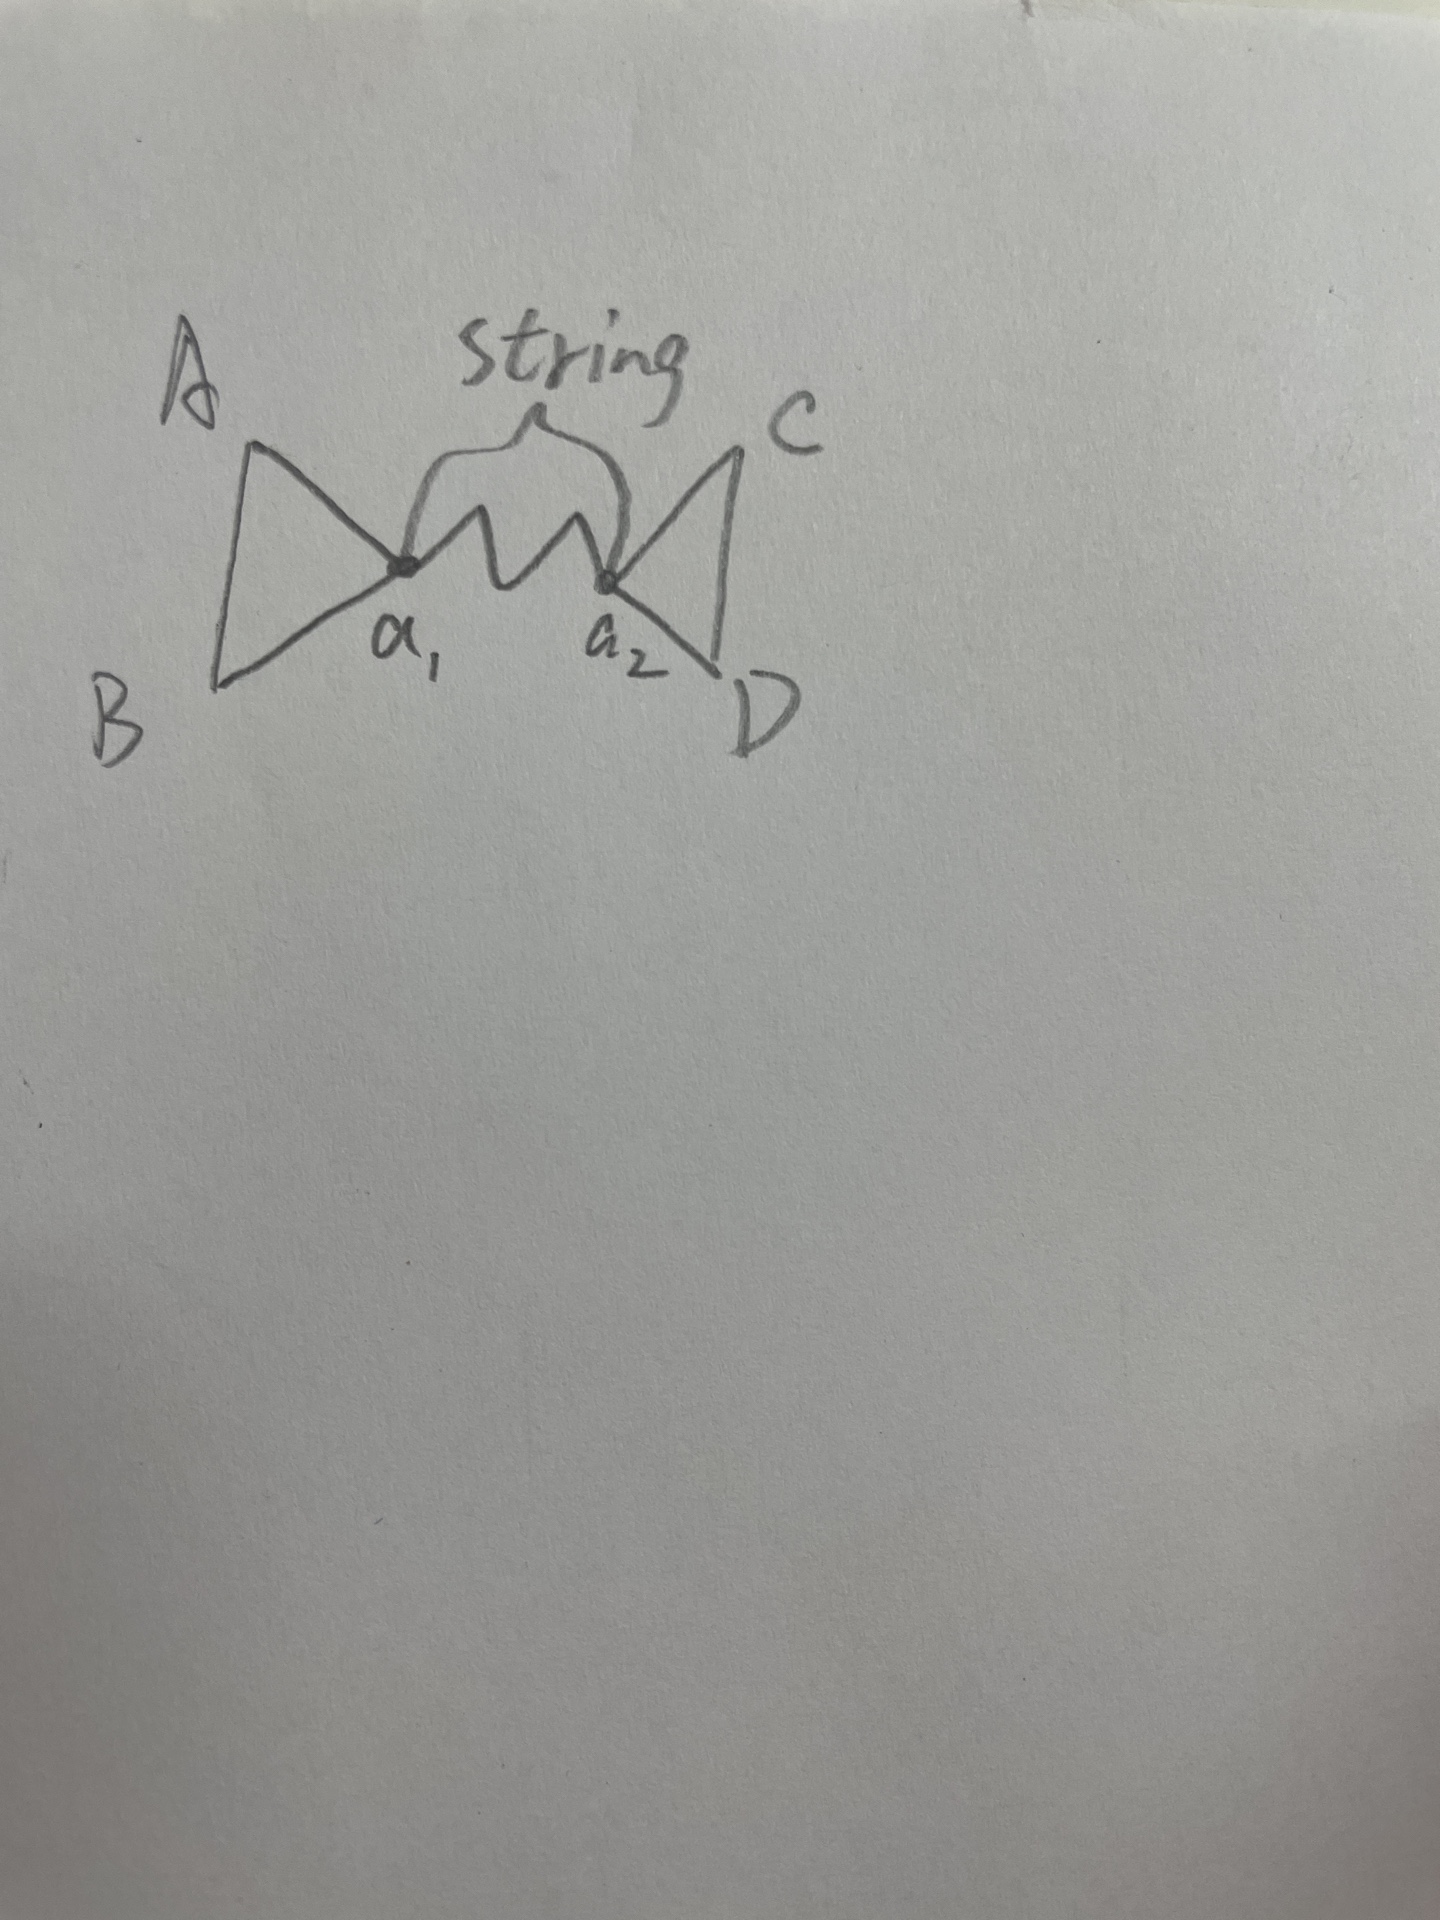 string
A
C
a₁
a₂
B
D